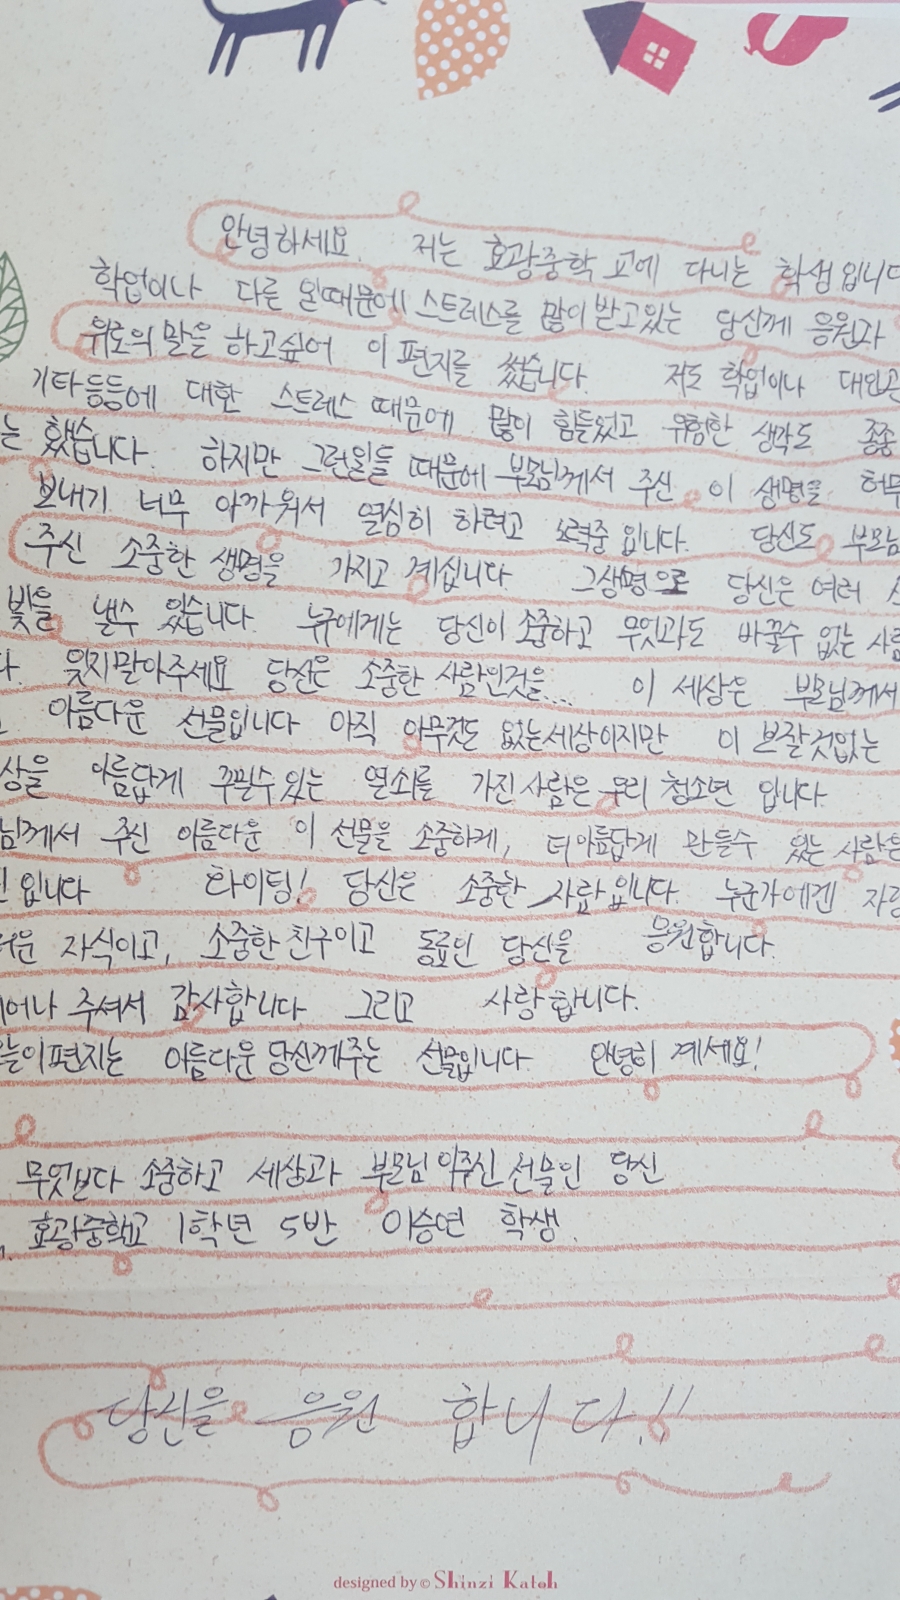 안녕하세요. 저는 호광중학교에 다니는 학생입니다
학업이나 다른 일때문에 스트레스를 많이 받고있는 당신께 응원과
위로의 말을 하고싶어 이 편지를 썼습니다. 저도 학업이나 대인관
기타등등에 대한 스트레스 때문에 많이 힘들었고 위험한 생각도 종종
는 했습니다. 하지만 그런일들 때문에 부모님께서 주신 이 생명을 허무
보내기 너무 아까워서 열심히 하려고 노력중 입니다. 당신도 부모님
주신 소중한 생명을 가지고 계십니다 그생명으로 당신은 여러
빛을 낼수 있습니다. 누구에게는 당신이 소중하고 무엇과도 바꿀수 없는 사람
다. 잊지말아주세요 당신은 소중한 사람인것을... 이 세상은 부모님께서
아름다운 선물입니다 아직 아무것도 없는세상이지만 이 보잘것없는
상을 아름답게 꾸밀수 있는 열쇠를 가진 사람은 우리 청소년 입니다.
님께서 주신 아름다운 이 선물을 소중하게, 더아름답게 만들수 있는 사람은
입니다 화이팅! 당신은 소중한 사람입니다. 누군가에겐 자랑
러운 자식이고, 소중한 친구이고 동료인 당신을 응원합니다.
태어나 주셔서 감사합니다. 그리고 사랑합니다.
오늘이편지는 아름다운 당신께주는 선물입니다 안녕히 계세요!
무엇보다 소중하고 세상과 부모님이주신 선물인 당신
호광중학교 1학년 5반 이승연 학생.
당신을 응원 합니다.!!
designed by © Shinzi Katoh